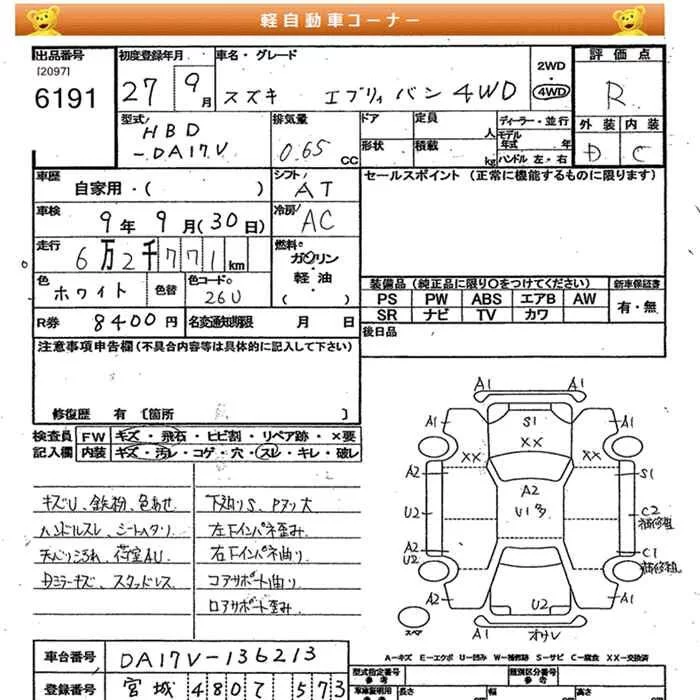 軽自動車コーナー
出品番号 初度登録年月 車名・グレード 2WD・4WD 評価点
[2097]
6191 27 9月 スズキ エブリィ バン 4WD R
型式 HBD-DA17V 排気量 0.65 CC ドア 定員 人 ディーラー・並行 外装 内装
形状 積載 kg モデル年式 年 ハンドル 左・右 D C
車歴 自家用・( ) シフト AT セールスポイント (正常に機能するものに限ります)
車検 9年 9月(30日) 冷房 AC
走行 6万2千771km 燃料 ガソリン・軽油・( )
色 ホワイト 色替 色コードNo. 26U
装備品(純正品に限り○をつけてください) 新車保証書
PS PW ABS エアB AW 有・無
SR ナビ TV カワ
R券 8400円 名変通知期限 月 日 後日品
注意事項申告欄(不具合内容等は具体的に記入して下さい)
修復歴 有 〔箇所 〕
検査員 FW キズ・飛石・ヒビ割・リペア跡・×要
記入欄 内装 キズ・汚レ・コゲ・穴・スレ・キレ・破レ
キズU、鉄粉、色あせ 下廻りS、Pアリ大
ハンドルスレ、シートヘタリ 左下インパネ歪み
天バリよごれ、荷室AU 右下インパネ曲り
Dミラーキズ、スタッドレス コアサポート曲り
ロアサポート歪み
A1 A1
A1 S1 A1
XX XX XX
A2 A2 S1
U2 U1多 C2 補修粗
A2 U2 C1 補修粗
A2 U2 A2
スペア A1 オサレ
A-キズ E-エクボ U-凹み W-補修跡 S-サビ C-腐食 XX-交換済
車台番号 DA17V-136213
登録番号 宮城 480 て 573
型式指定番号 類別区分番号
車庫証明用参考 長さ 幅 高さ